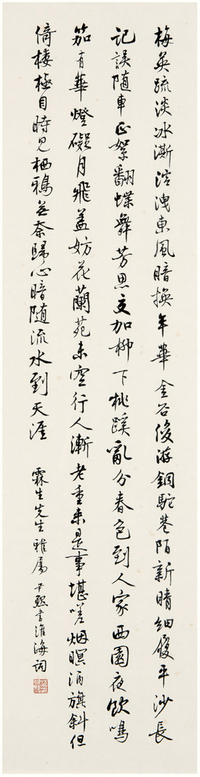 梅英疏淡冰澌溶洩東風暗換年華金谷俊游銅駝巷陌新晴細履平沙長
記誤隨車正絮翻蝶舞芳思交加柳下桃蹊亂分春色到人家西園夜飲鳴
笳有華燈礙月飛蓋妨花蘭苑未空行人漸老重來是事堪嗟烟暝酒旗斜但
倚樓極目時見棲鴉無奈歸心暗隨流水到天涯
霖生先生雅屬 尹默書淮海詞